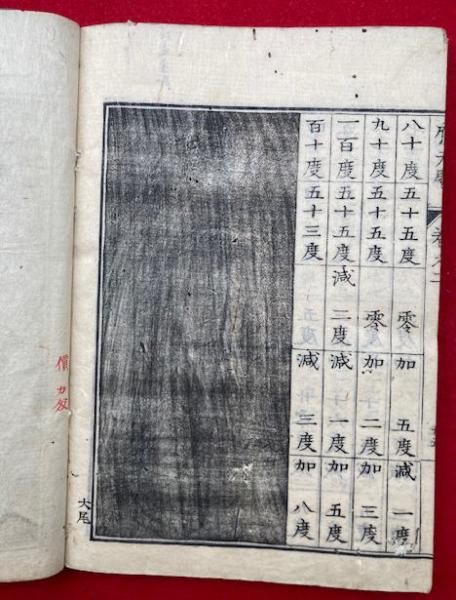 八十度五十五度 零 加 五度減 一度
九十度五十五度 零 加 二度加 三度
一百度五十五度減 二度減 一度加 五度
百十度五十三度 減 三度加 八度
大尾